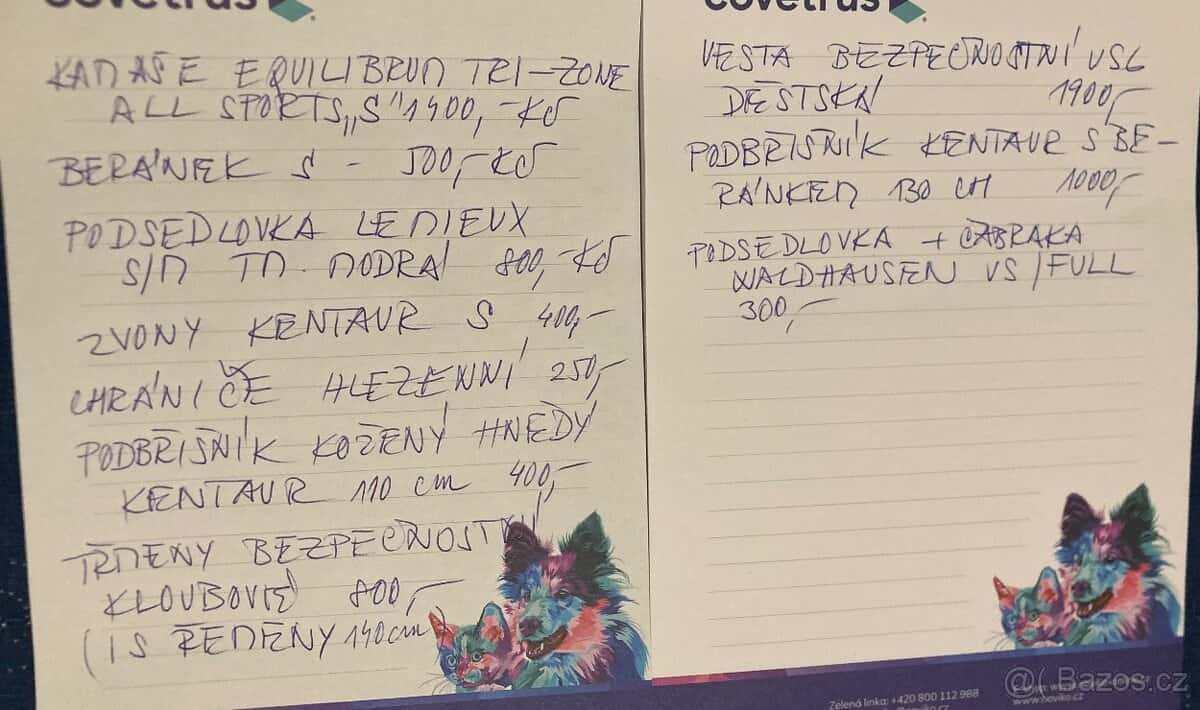 covetrus
KAMAŠE EQUILIBRUM TRI-ZONE
ALL SPORTS „S" 1400,-KČ
BERÁNEK S - 500,-KČ
PODSEDLOVKA LEMIEUX
S/M TM. MODRÁ 800,-KČ
ZVONY KENTAUR S 400,-
CHRÁNIČE HLEZENNÍ 250,-
PODBŘIŠNÍK KOŽENÝ HNĚDÝ
KENTAUR 110 cm 400,-
TŘMENY BEZPEČNOSTNÍ
KLOUBOVÉ 800,-
(I S ŘEMENY 140cm)
covetrus
VESTA BEZPEČNOSTNÍ USG
DĚTSKÁ 1900,-
PODBŘIŠNÍK KENTAUR S BE-
RÁNKEM 130 CM 1000,-
PODSEDLOVKA + ČABRAKA
WALDHAUSEN VS/FULL
300,-
Zelená linka: +420 800 112 988
www.noviko.cz
Bazos.cz